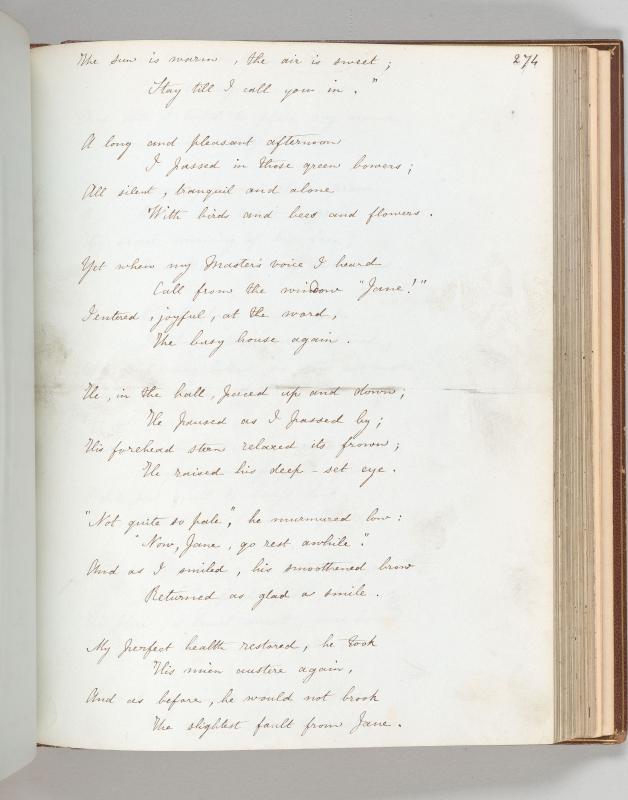 274
The sun is warm, the air is sweet;
Stay till I call you in."
A long and pleasant afternoon
I passed in those green bowers;
All silent, tranquil and alone
With birds and bees and flowers.
Yet when my Master's voice I heard
Call from the window "Jane!"
I entered, joyful, at the word,
The busy house again.
He, in the hall, paced up and down;
He paused as I passed by;
His forehead stern relaxed its frown;
He raised his deep-set eye.
"Not quite so pale", he murmured low:
"Now, Jane, go rest awhile."
And as I smiled, his smoothened brow
Returned as glad a smile.
My perfect health restored, he took
His mien austere again,
And as before, he would not brook
The slightest fault from Jane.